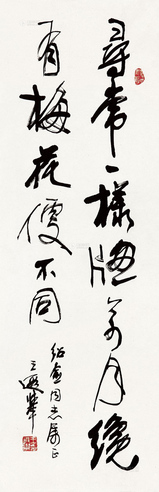 尋常一樣牕前月纔
有梅花便不同
紹同志屬正
王遐舉